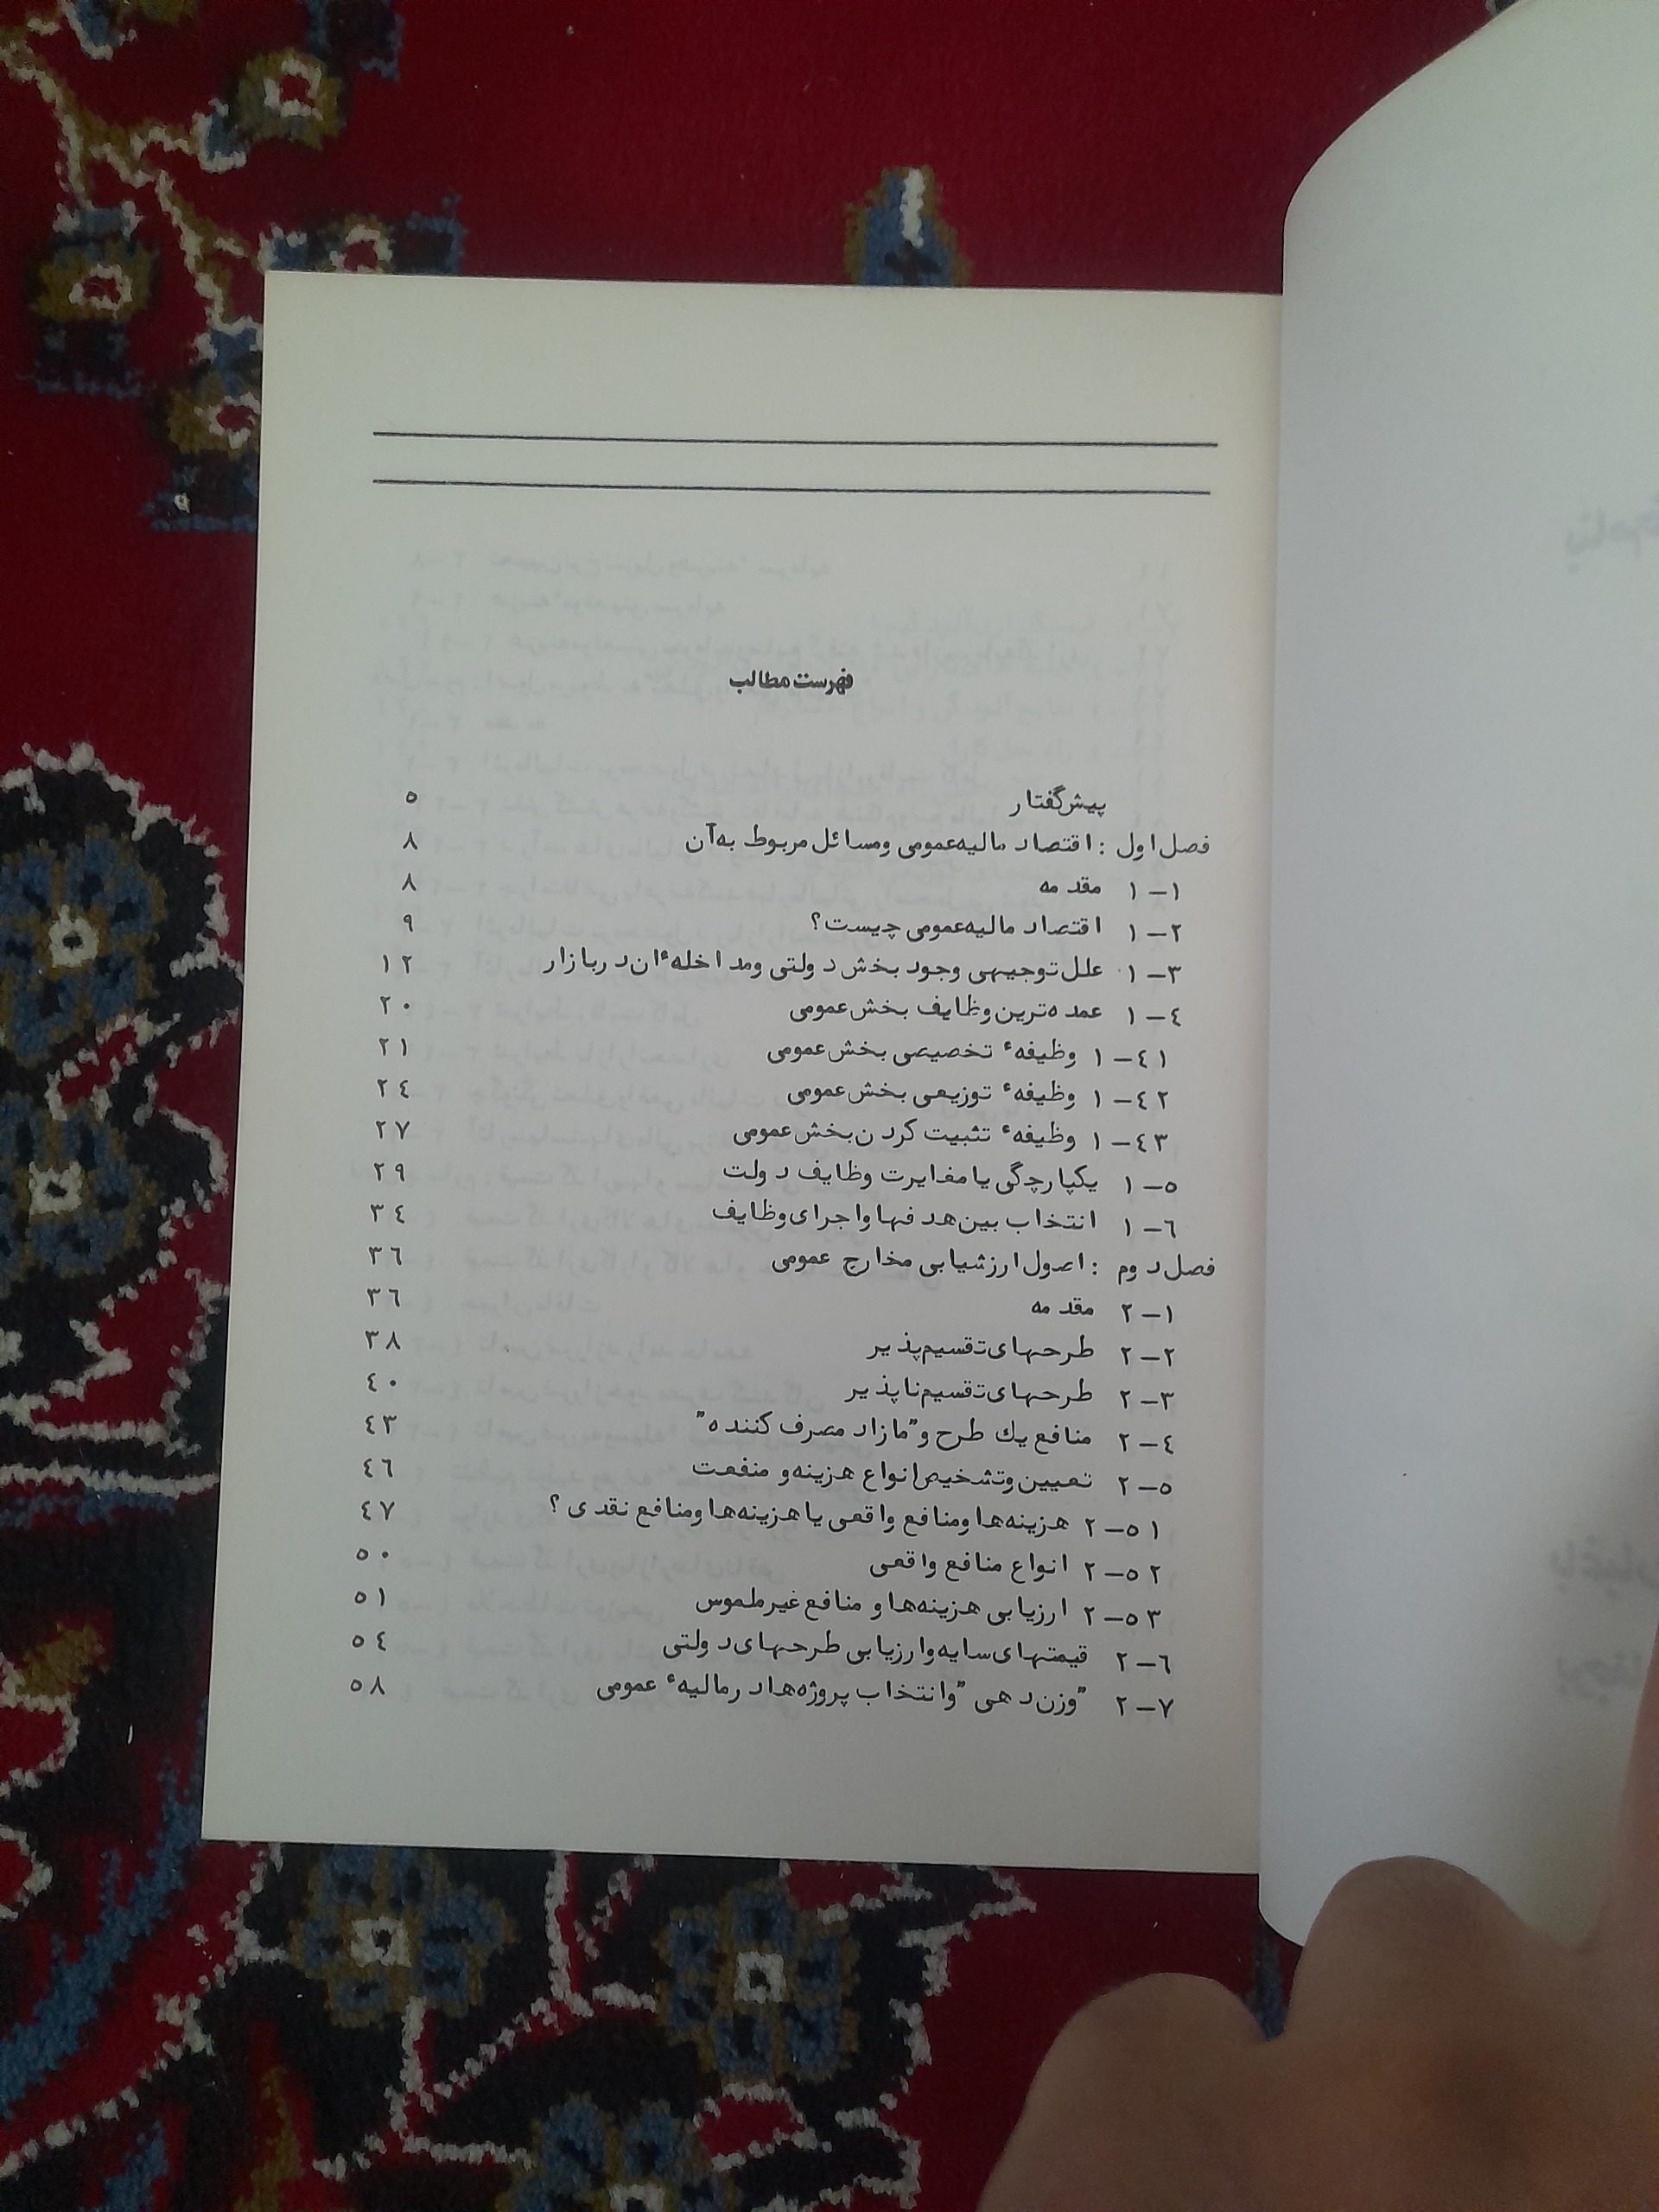 فهرست مطالب
پیش‌گفتار ۵
فصل اول : اقتصاد مالیه‌عمومی ومسائل مربوط به‌آن ۸
۱–۱ مقدمه ۸
۱–۲ اقتصاد مالیه‌عمومی چیست؟ ۹
۱–۳ علل توجیهی وجود بخش دولتی ومداخلهٔ‌ان در بازار ۱۲
۱–۴ عمده‌ترین وظایف بخش‌عمومی ۲۰
۱–۴۱ وظیفهٔ تخصیصی بخش‌عمومی ۲۱
۱–۴۲ وظیفهٔ توزیعی بخش‌عمومی ۲۴
۱–۴۳ وظیفهٔ تثبیت کردن‌بخش‌عمومی ۲۷
۱–۵ یکپارچگی یا مغایرت وظایف دولت ۲۹
۱–۶ انتخاب بین‌هدفها واجرای وظایف ۳۴
فصل دوم : اصول ارزشیابی مخارج عمومی ۳۶
۲–۱ مقدمه ۳۶
۲–۲ طرحهای‌تقسیم‌پذیر ۳۸
۲–۳ طرحهای‌تقسیم‌ناپذیر ۴۰
۲–۴ منافع یك طرح و"مازاد مصرف کننده" ۴۳
۲–۵ تعیین‌وتشخیص‌انواع هزینه‌و منفعت ۴۶
۲–۵۱ هزینه‌ها ومنافع واقعی یا هزینه‌ها ومنافع نقدی ؟ ۴۷
۲–۵۲ انواع منافع واقعی ۵۰
۲–۵۳ ارزیابی هزینه‌ها و منافع غیرملموس ۵۱
۲–۶ قیمتهای‌سایه‌وارزیابی طرحهای‌دولتی ۵۴
۲–۷ "وزن‌دهی "وانتخاب پروژه‌ها در مالیهٔ عمومی ۵۸